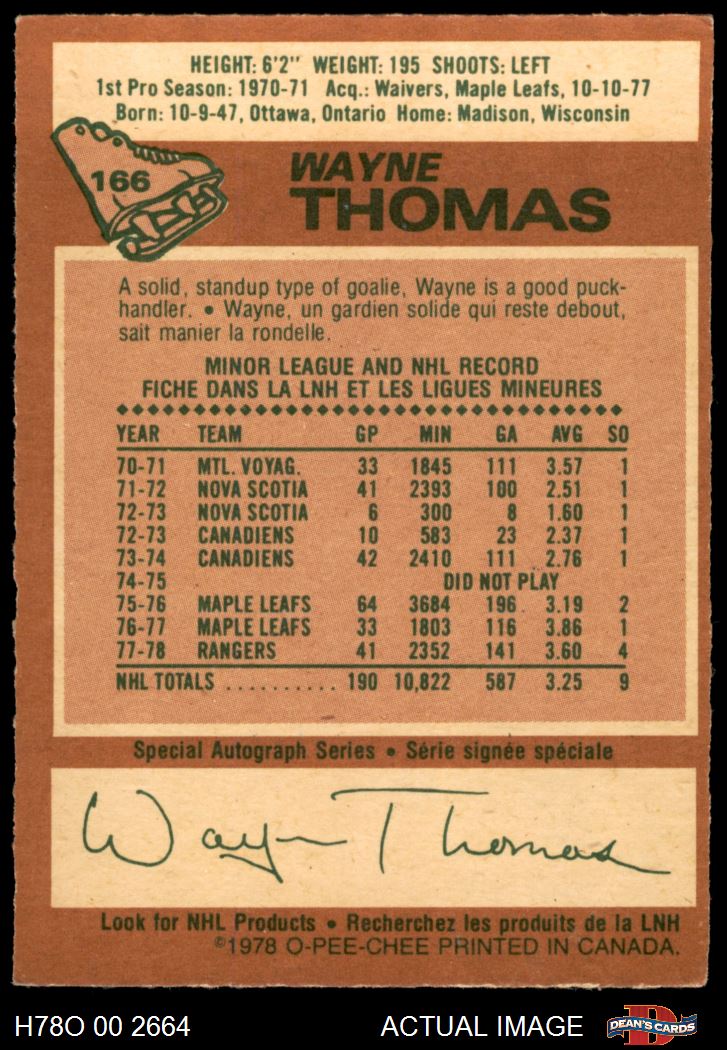 HEIGHT: 6'2" WEIGHT: 195 SHOOTS: LEFT
1st Pro Season: 1970-71 Acq.: Waivers, Maple Leafs, 10-10-77
Born: 10-9-47, Ottawa, Ontario Home: Madison, Wisconsin
166
WAYNE
THOMAS
A solid, standup type of goalie, Wayne is a good puck-
handler. • Wayne, un gardien solide qui reste debout,
sait manier la rondelle.
MINOR LEAGUE AND NHL RECORD
FICHE DANS LA LNH ET LES LIGUES MINEURES
YEAR TEAM GP MIN GA AVG SO
70-71 MTL. VOYAG. 33 1845 111 3.57 1
71-72 NOVA SCOTIA 41 2393 100 2.51 1
72-73 NOVA SCOTIA 6 300 8 1.60 1
72-73 CANADIENS 10 583 23 2.37 1
73-74 CANADIENS 42 2410 111 2.76 1
74-75 DID NOT PLAY
75-76 MAPLE LEAFS 64 3684 196 3.19 2
76-77 MAPLE LEAFS 33 1803 116 3.86 1
77-78 RANGERS 41 2352 141 3.60 4
NHL TOTALS .......... 190 10,822 587 3.25 9
Special Autograph Series • Série signée spéciale
Wayne Thomas
Look for NHL Products • Recherchez les produits de la LNH
©1978 O-PEE-CHEE PRINTED IN CANADA.
H78O 00 2664 ACTUAL IMAGE D DEAN'S CARDS